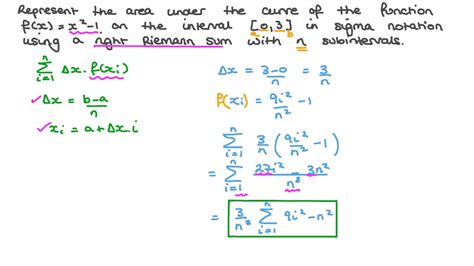 Represent the area under the curve of the function
f(x) = x² - 1 on the interval [0,3] in sigma notation
a b
using a right Riemann sum with n subintervals.
n
∑ Δx · f(xi)
i=1
✓ Δx = b-a / n
✓ xi = a + Δx · i
Δx = 3-0 / n = 3 / n
f(xi) = 9i² / n² - 1
n
∑ 3/n ( 9i²/n² - 1 )
i=1
n
= ∑ 27i² - 3n² / n³
i=1
n
= 3/n³ ∑ 9i² - n²
i=1